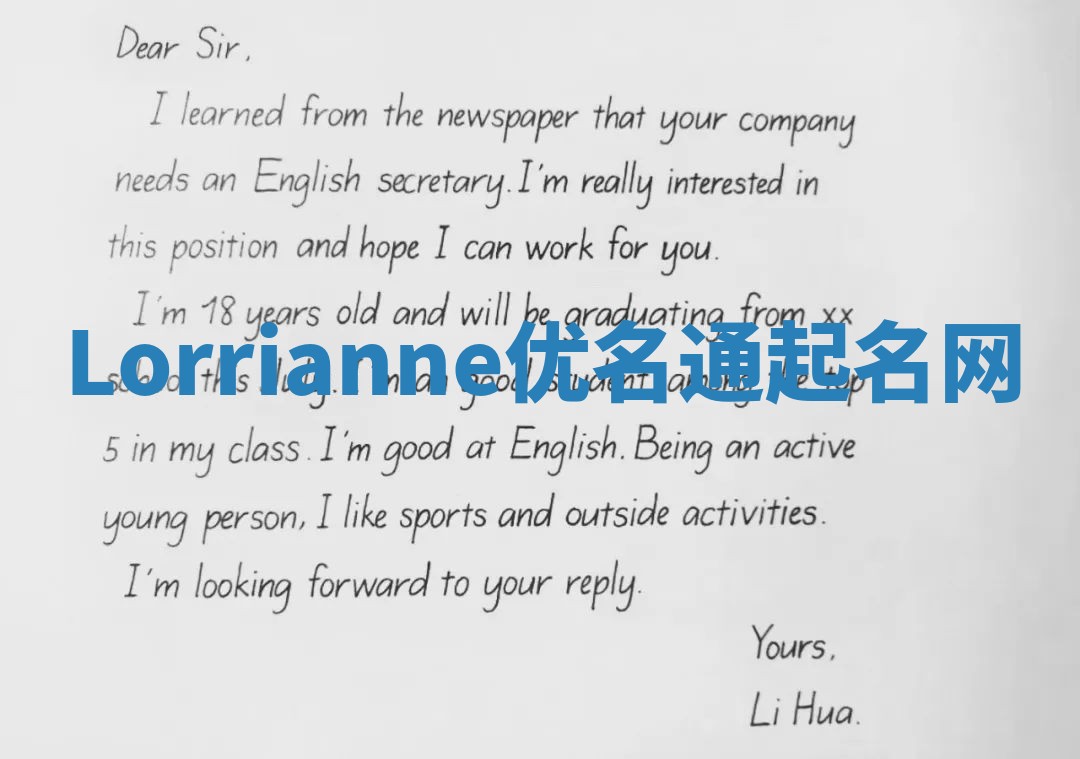 Dear Sir,
I learned from the newspaper that your company
needs an English secretary. I'm really interested in
this position and hope I can work for you.
I'm 18 years old and will be graduating from xx
Lorrianne优名通起名网
school this July. I'm a good student among the top
5 in my class. I'm good at English. Being an active
young person, I like sports and outside activities.
I'm looking forward to your reply.
Yours,
Li Hua.